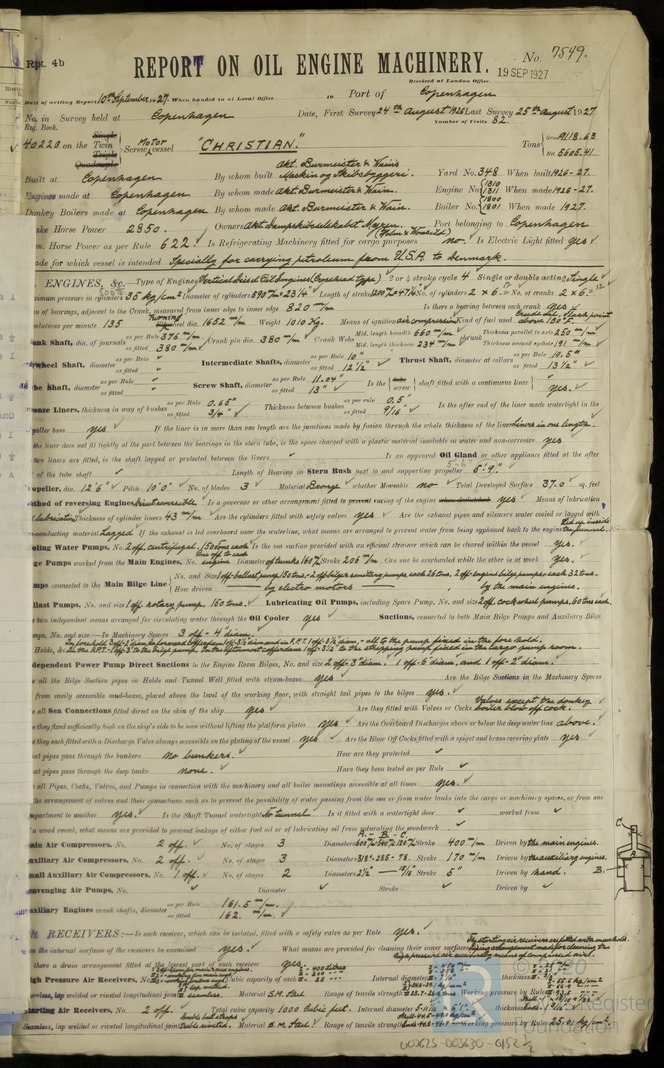 Rpt. 4b
REPORT ON OIL ENGINE MACHINERY.
No. 7549.
Received at London Office 19 SEP 1927
Date of writing Report 10th September 1927. When handed in at Local Office 19 Port of Copenhagen
No. in Survey held at Copenhagen Date, First Survey 24th August 1926 Last Survey 25th August 1927
Reg. Book. Number of Visits 82.
40220 on the Single Twin Triple Quadruple Screw Motor vessel "CHRISTIAN." Tons Gross 9118.63 Net 5605.41
Built at Copenhagen By whom built Akt. Burmeister & Wain's Maskin og Skibsbyggeri. Yard No. 348 When built 1926-27.
Engines made at Copenhagen By whom made Akt. Burmeister & Wain. Engine No. 1810 1811 When made 1926-27.
Donkey Boilers made at Copenhagen By whom made Akt. Burmeister & Wain. Boiler No. 1800 1801 When made 1927.
Brake Horse Power 2850. Owners Akt. Dampskibsselskabet Port belonging to Copenhagen
Nom. Horse Power as per Rule 622. Is Refrigerating Machinery fitted for cargo purposes no. Is Electric Light fitted yes
Trade for which vessel is intended Specially for carrying petroleum from U.S.A. to Denmark.
ENGINES, &c. Type of Engines Vertical Diesel Oil Engines (Crosshead type) 2 or 4 stroke cycle 4 Single or double acting Single
Maximum pressure in cylinders 35 kg/cm² Diameter of cylinders 590 m/m = 23 1/4" Length of stroke No. of cylinders 2 × 6. No. of cranks 2 × 6.
Span of bearings, adjacent to the Crank, measured from inner edge to inner edge 820 m/m Is there a bearing between each crank yes
Revolutions per minute 135 Flywheel dia. 1652 m/m Weight 1010 Kg. Means of ignition air compression Kind of fuel used
Crank Shaft, dia. of journals as per Rule 376 m/m as fitted 380 m/m Crank pin dia. 380 m/m Crank Webs Mid. length breadth 660 m/m Mid. length thickness 234 m/m Thickness parallel to axis 250 m/m Thickness around eyehole 191 m/m
Flywheel Shaft, diameter as per Rule as fitted Intermediate Shafts, diameter as per Rule 10" as fitted 12 1/2" Thrust Shaft, diameter at collars as per Rule 10.5" as fitted 13 1/2"
Tube Shaft, diameter as per Rule as fitted Screw Shaft, diameter as per Rule 11.04" as fitted 13" Is the tube screw shaft fitted with a continuous liner yes.
Bronze Liners, thickness in way of bushes as per Rule 0.65" as fitted 3/4" Thickness between bushes as per Rule 0.5" as fitted 9/16" Is the after end of the liner made watertight in the
propeller boss yes If the liner is in more than one length are the junctions made by fusion through the whole thickness of the liner liners in one length.
If the liner does not fit tightly at the part between the bearings in the stern tube, is the space charged with a plastic material insoluble in water and non-corrosive yes
If two liners are fitted, is the shaft lapped or protected between the liners Is an approved Oil Gland or other appliance fitted at the after
end of the tube shaft Length of Bearing in Stern Bush next to and supporting propeller 5'-9"
Propeller, dia. 12'6" Pitch 10'0" No. of blades 3 Material Bronze whether Moveable no Total Developed Surface 37.0 sq. feet
Method of reversing Engines direct reversible Is a governor or other arrangement fitted to prevent racing of the engine when declutched yes Means of lubrication
Thickness of cylinder liners 43 m/m Are the cylinders fitted with safety valves yes Are the exhaust pipes and silencers water cooled or lagged with
non-conducting material Lagged If the exhaust is led overboard near the waterline, what means are arranged to prevent water from being syphoned back to the engine
Cooling Water Pumps, No. 2 off, centrifugal, 150 tons each Is the sea suction provided with an efficient strainer which can be cleared within the vessel yes.
Bilge Pumps worked from the Main Engines, No. Diameter of trunks 160 Stroke 206 m/m Can one be overhauled while the other is at work yes.
Pumps connected to the Main Bilge Line No. and Size 1 off ballast pump 150 tons - 2 off bilge & sanitary pumps each 26 tons, 2 off engine bilge pumps each 32 tons.
How driven by electro motors by the main engines.
Ballast Pumps, No. and size 1 off rotary pump, 150 tons. Lubricating Oil Pumps, including Spare Pump, No. and size 2 off, cockwheel pumps, 60 tons each.
Are two independent means arranged for circulating water through the Oil Cooler yes Suctions, connected to both Main Bilge Pumps and Auxiliary Bilge
Pumps, No. and size:—In Machinery Spaces 3 off - 4" diam.
Independent Power Pump Direct Suctions to the Engine Room Bilges, No. and size 2 off - 3" diam. 1 off - 6" diam, and 1 off - 2" diam.
Are all the Bilge Suction pipes in Holds and Tunnel Well fitted with strum-boxes yes Are the Bilge Suctions in the Machinery Spaces
led from easily accessible mud-boxes, placed above the level of the working floor, with straight tail pipes to the bilges yes.
Are all Sea Connections fitted direct on the skin of the ship yes Are they fitted with Valves or Cocks Valves except the donkey boiler blow off cock.
Are they fixed sufficiently high on the ship's side to be seen without lifting the platform plates yes Are the Overboard Discharges above or below the deep water line above.
Are they each fitted with a Discharge Valve always accessible on the plating of the vessel yes Are the Blow Off Cocks fitted with a spigot and brass covering plate yes
What pipes pass through the bunkers no bunkers. How are they protected
What pipes pass through the deep tanks none. Have they been tested as per Rule
Are all Pipes, Cocks, Valves, and Pumps in connection with the machinery and all boiler mountings accessible at all times yes.
Is the arrangement of valves and their connections such as to prevent the possibility of water passing from the sea or from water tanks into the cargo or machinery spaces, or from one
compartment to another yes. Is the Shaft Tunnel watertight no tunnel Is it fitted with a watertight door worked from
If a wood vessel, what means are provided to prevent leakage of either fuel oil or of lubricating oil from saturating the woodwork
Main Air Compressors, No. 2 off. No. of stages 3 Stroke 400 m/m Driven by the main engines.
Auxiliary Air Compressors, No. 2 off. No. of stages 3 Diameters 318-285-78. Stroke 170 m/m Driven by the auxiliary engines.
Small Auxiliary Air Compressors, No. 1 off. No. of stages 2 Stroke 5" Driven by hand.
Scavenging Air Pumps, No. Diameter Stroke Driven by
Auxiliary Engines crank shafts, diameter as per Rule 161.5 m/m. as fitted 162. m/m.
AIR RECEIVERS:—Is each receiver, which can be isolated, fitted with a safety valve as per Rule yes.
Can the internal surfaces of the receivers be examined yes. What means are provided for cleaning their inner surfaces
Is there a drain arrangement fitted at the lowest part of each receiver yes
High Pressure Air Receivers, No. Cubic capacity of each Internal diameter thickness
Seamless, lap welded or riveted longitudinal joint seamless. Material S.M. Steel Range of tensile strength Working pressure by Rules
Starting Air Receivers, No. 2 off. Total cubic capacity 1000 Cubic feet. Internal diameter
Seamless, lap welded or riveted longitudinal joint treble riveted. Material S.M. Steel Range of tensile strength Working pressure by Rules 25.01 kg/cm²
© 2020
Lloyd's Register
Foundation
002625-002630-0152 1/2